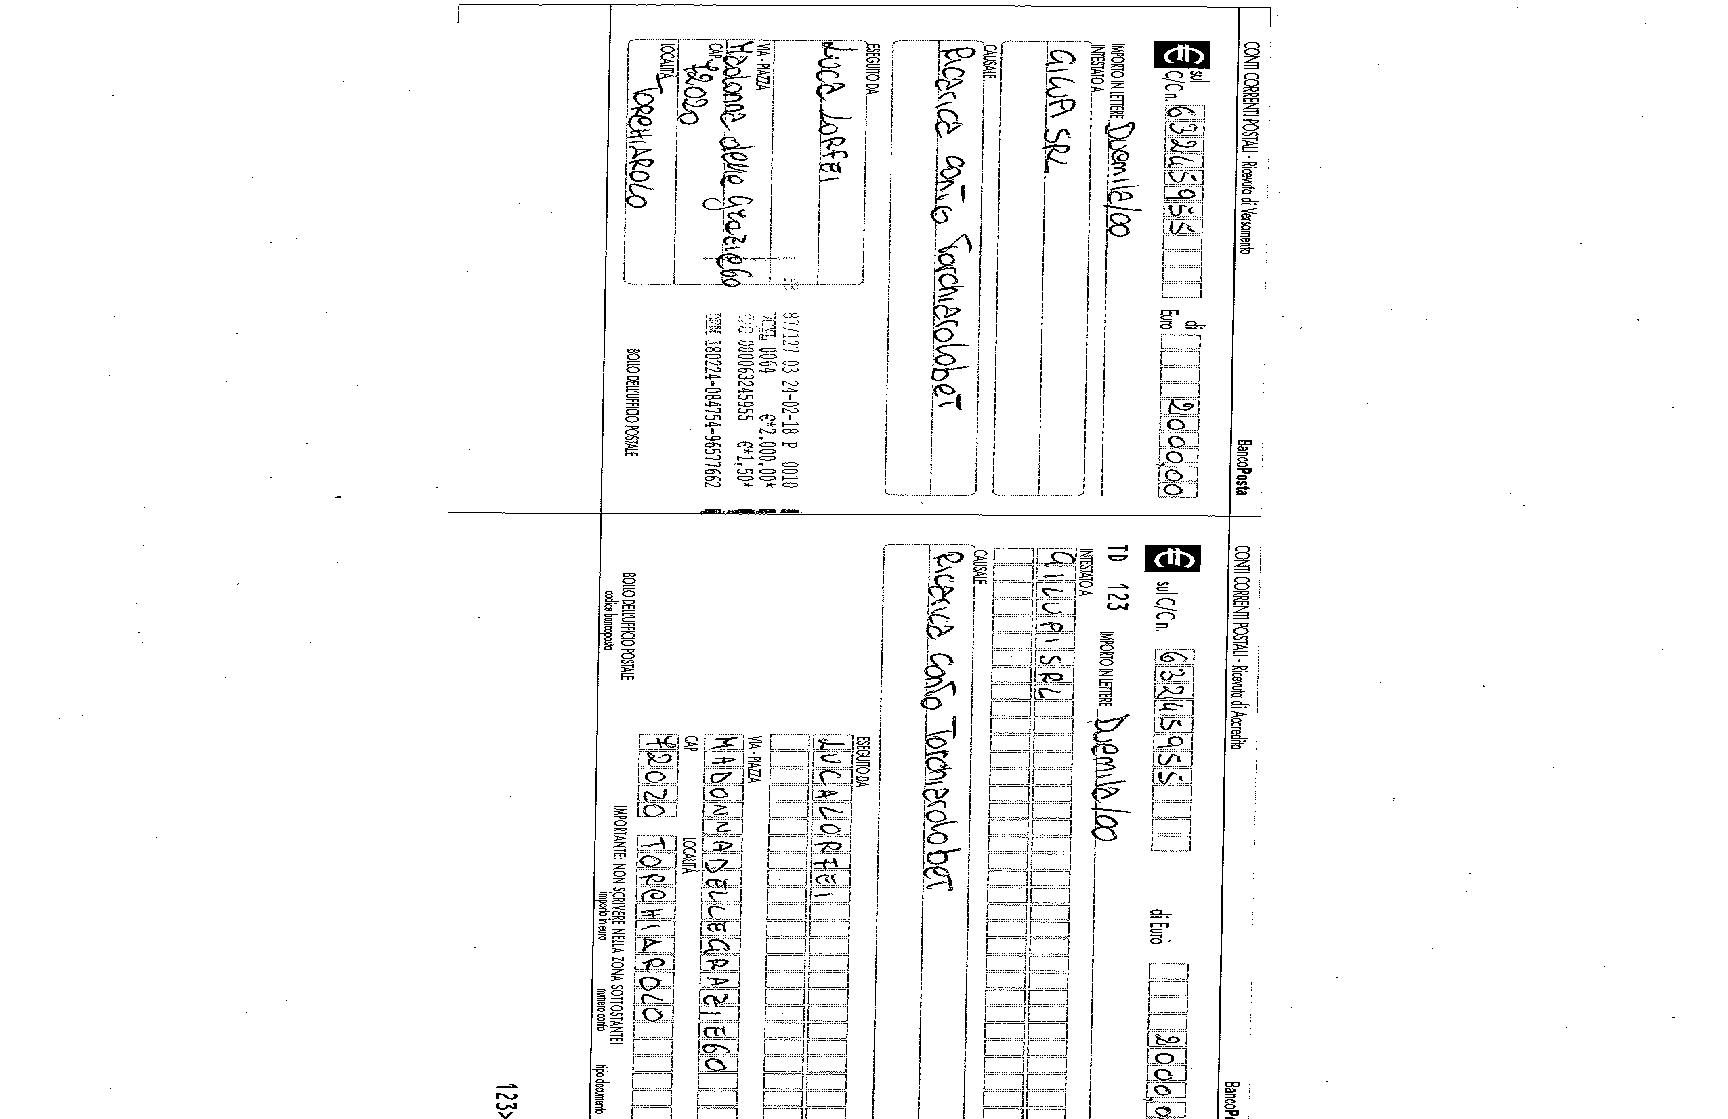 CONTI CORRENTI POSTALI - Ricevuta di Versamento
BancoPosta
€ sul C/C n. 63245955 di Euro 2000,00
IMPORTO IN LETTERE Duemila/00
INTESTATO A
GILUPI SRL
CAUSALE
Ricarica conto Torchiarolobet
ESEGUITO DA
Luca Lorfei
VIA - PIAZZA
Madonna delle Grazie 60
CAP 72020
LOCALITÀ
TORCHIAROLO
87/127 03 24-02-18 P 0010
0064 €*2.000,00*
000063245955 €*1,50*
180224-084754-96577662
BOLLO DELL'UFFICIO POSTALE
CONTI CORRENTI POSTALI - Ricevuta di Accredito
BancoP
€ sul C/C n. 63245955 di Euro 2000,0
TD 123 IMPORTO IN LETTERE Duemila/00
INTESTATO A
SRL
CAUSALE
Ricarica conto Torchiarolobet
ESEGUITO DA
LUCA LORFEI
VIA - PIAZZA
MADONNA DELLE GRAZIE 60
CAP LOCALITÀ
72020 TORCHIAROLO
BOLLO DELL'UFFICIO POSTALE
codice bancoposta
IMPORTANTE: NON SCRIVERE NELLA ZONA SOTTOSTANTE!
importo in euro numero conto tipo documento
123>